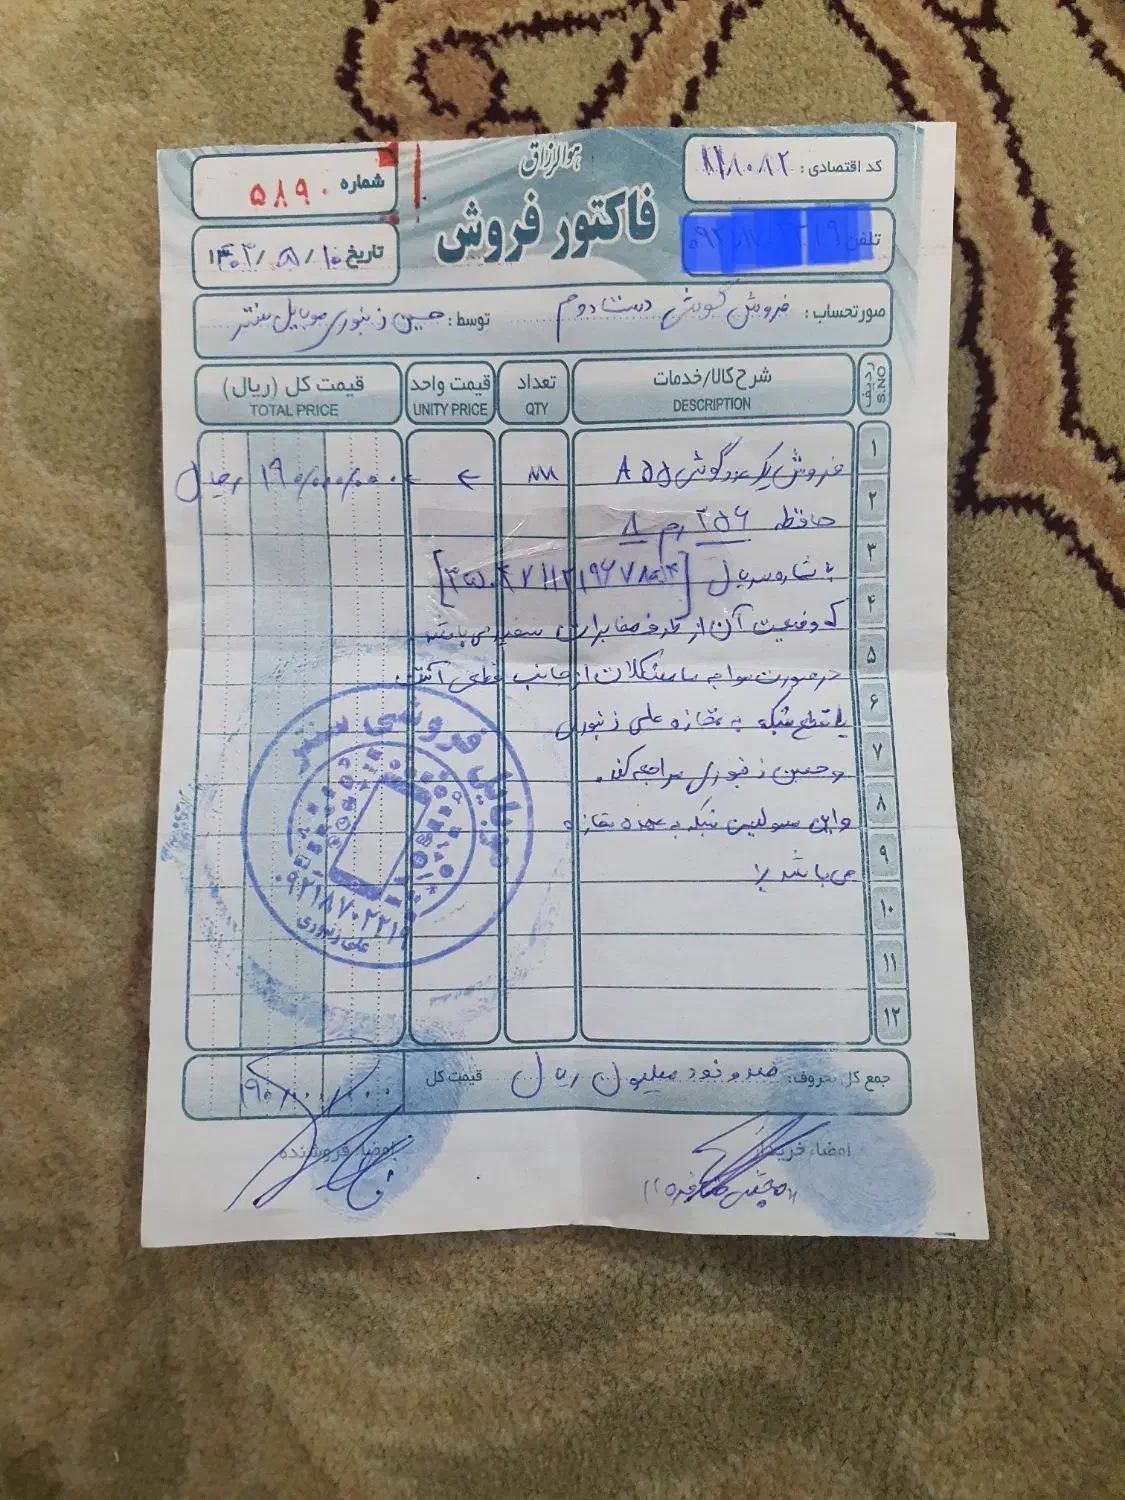 هوالرزاق
فاکتور فروش
کد اقتصادی:
تلفن
شماره ۵۸۹۰
تاریخ ۱۰/
صورتحساب: فروش گوشی دست دوم توسط: حسین زنبوری موبایل سنتر
ردیف شرح کالا/خدمات تعداد قیمت واحد قیمت کل (ریال)
S.NO DESCRIPTION QTY UNITY PRICE TOTAL PRICE
۱ فروش یک عدد گوشی A۵۵ ۱۹۰/۰۰۰/۰۰۰ ریال
۲ حافظه ۲۵۶ رم ۸
۳ با شماره سریال
۴ که وضعیت آن از طرف مخابرات سفید می باشد
۵ در صورت مواجه با مشکلات از جانب قطعی آنتن
۶ یا قطع شبکه به مغازه علی زنبوری
۷ و حسین زنبوری مراجعه کند.
۸ و این مسولیت شبکه به عهده مغازه
۹ می باشد
۱۰
۱۱
۱۲
موبایل فروشی سنتر
۰۹۲۱۸۷۰۲۲۱۹
علی زنبوری
جمع کل بحروف: صد و نود میلیون ریال قیمت کل ۱۹۰/۰۰۰/۰۰۰
امضاء خریدار امضاء فروشنده